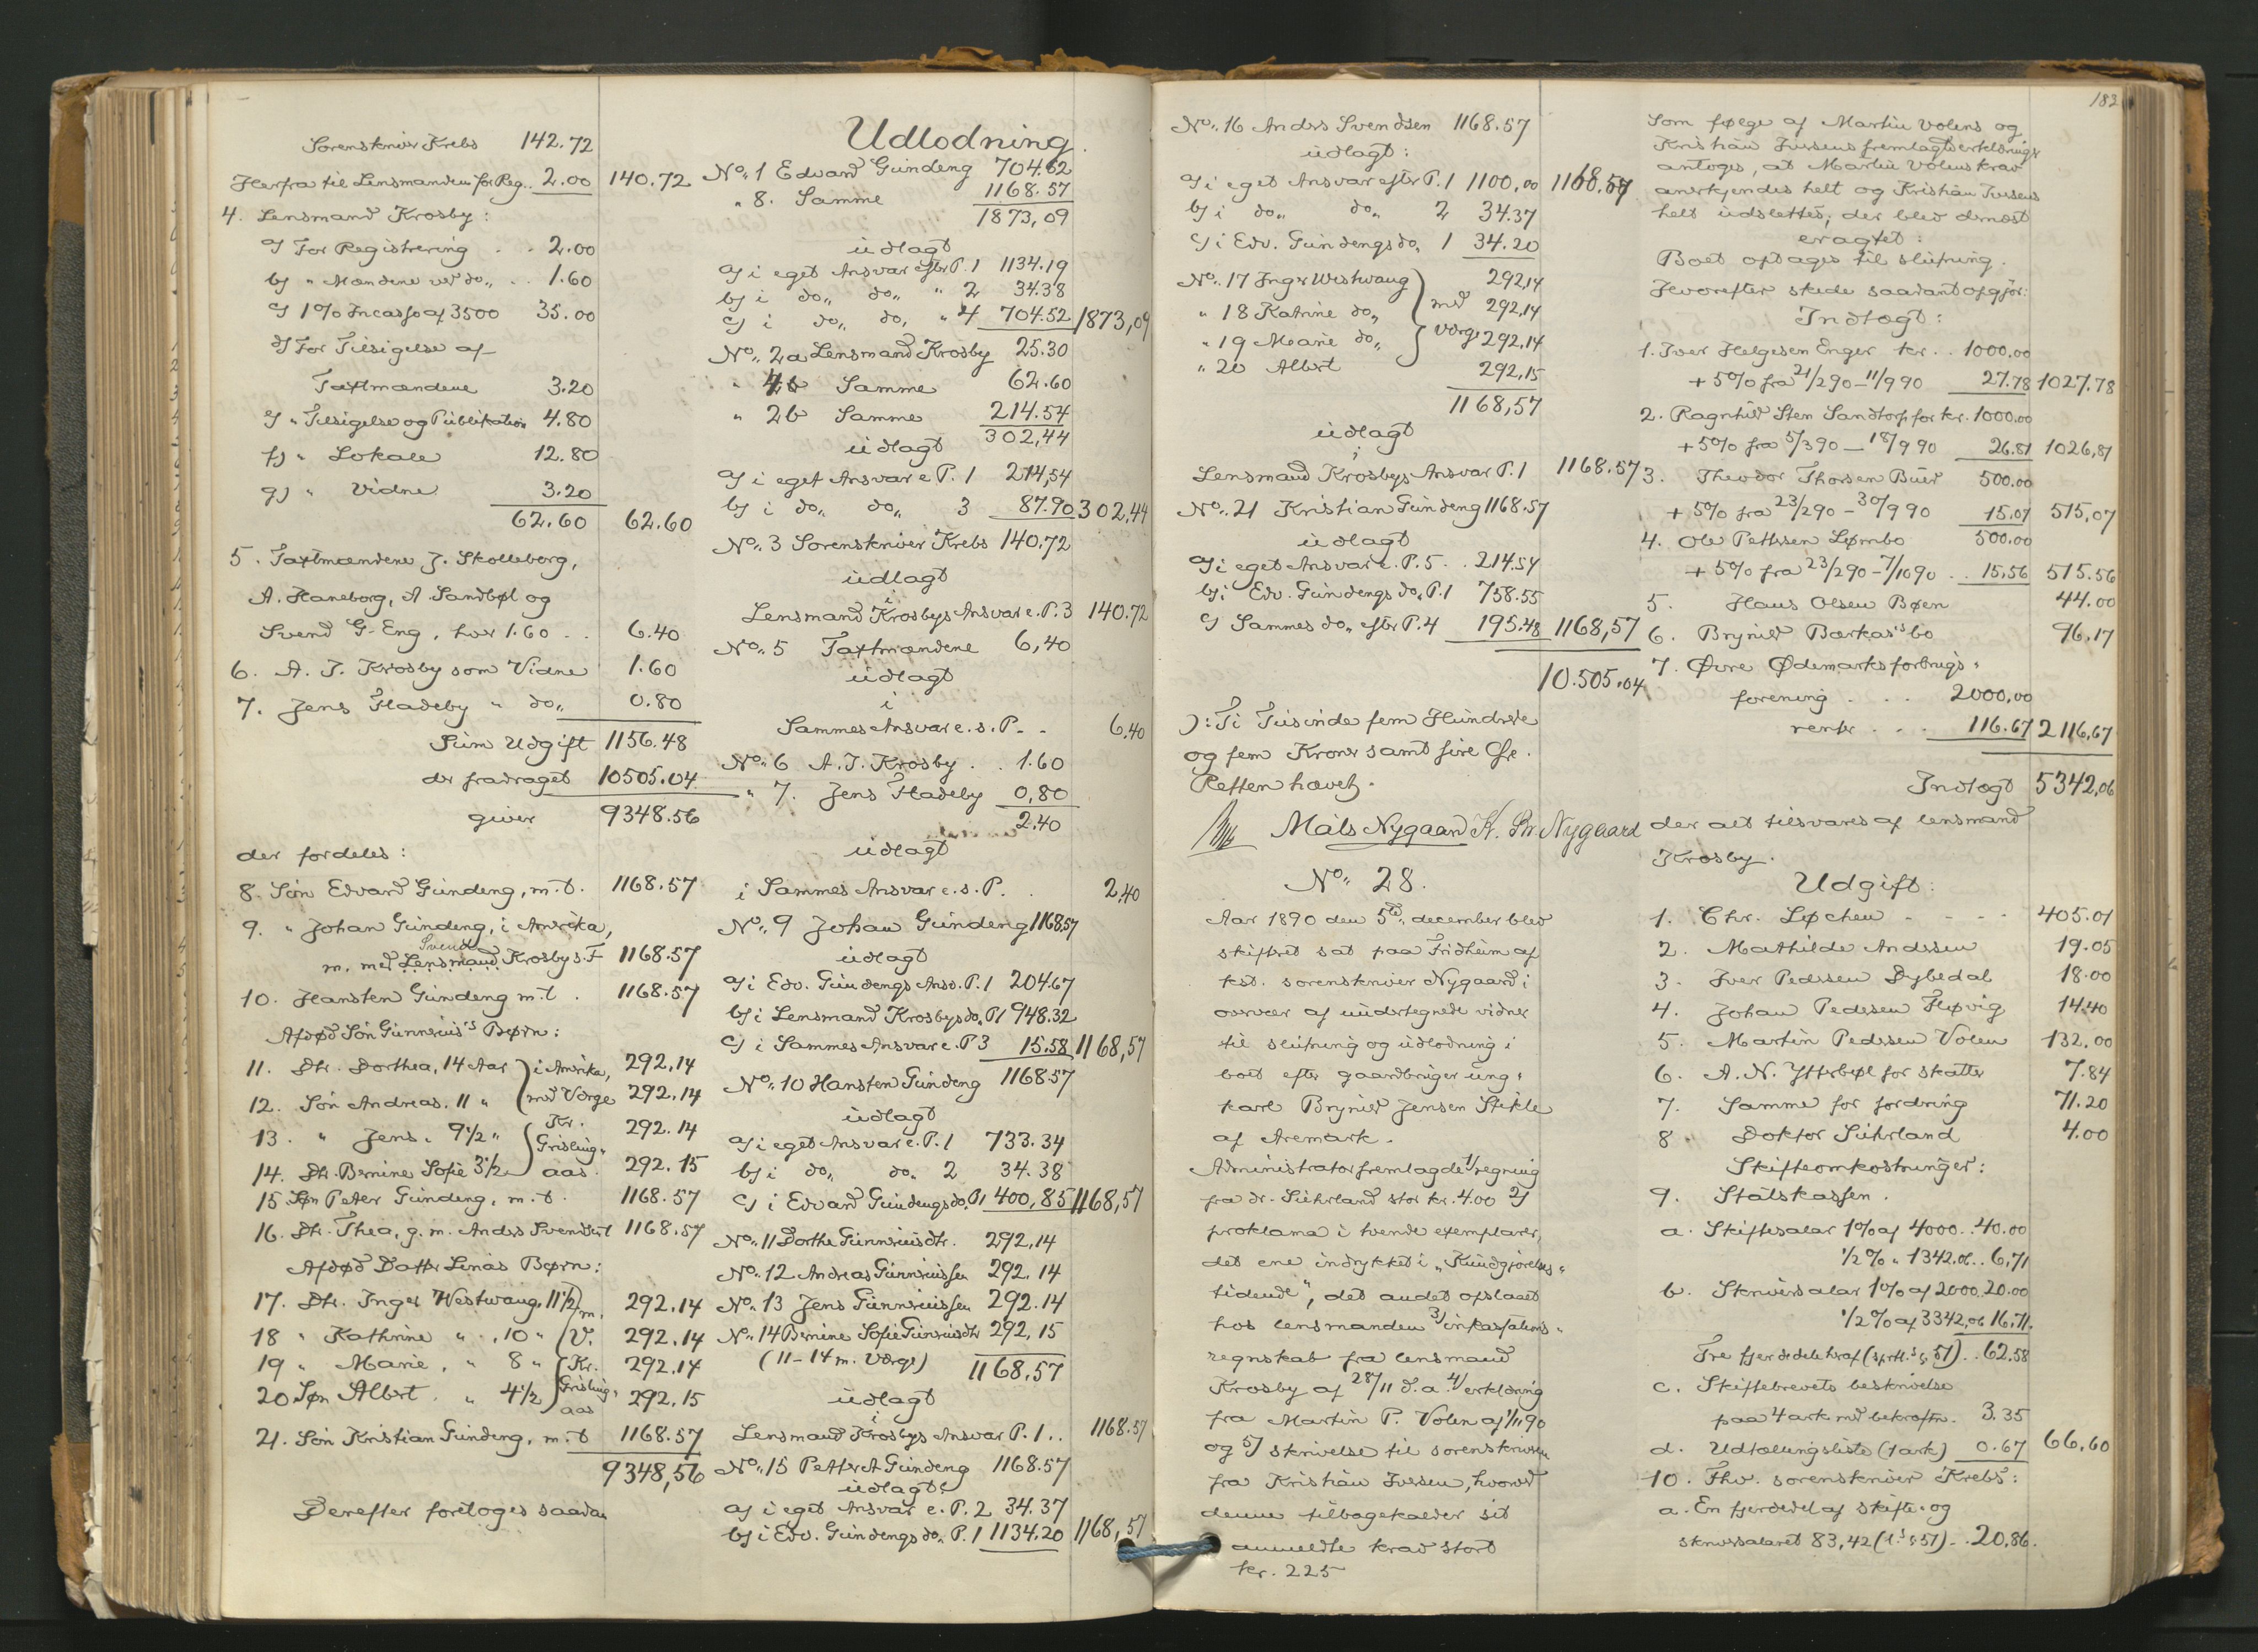 Sorenskriver Krebs 142.72
Herfra til Lensmanden for Reg.. 2.00 140.72
4. Lensmand Krosby:
a) For Registrering . . 2.00
b) " Mændene ved do,, . . 1.60
c) 1% Incasso af 3500 35.00
d) For Tilsigelse af
Taxtmændene 3.20
e) " Tilsigelse og Publikation 4.80
f) " Lokale 12.80
g) " Vidne 3.20
62.60 62.60
5. Taxtmændene J. Skolleborg,
A. Haneborg, A. Sandbøl og
Svend G. Eng, hver 1.60 . . 6.40
6. A. J. Krosby som Vidne 1.60
7. Jens Fladeby " do,, 0.80
Sum Udgift 1156.48
der fradraget 10505.04
giver 9348.56
der fordeles:
8. Søn Edvard Gundeng, m.t. 1168.57
9. " Johan Gundeng, i Amerika,
Svend
m. med Lensmand Krosby s. F 1168.57
10. Hansten Gundeng m.t . 1168.57
Afdød Søn Gunnerius's Børn:
11. Dtr. Dorthea, 14 Aar i Amerika, 292.14
12. Søn Andreas. 11 " med Værge 292.14
13. " Jens. 9½ " Kr. Grisling- 292.14
14. Dtr. Bernine Sofie 3½ aas. 292.15
15. Søn Petter Gundeng, m.t. 1168.57
16. Dtr. Thea, g.m. Anders Svendsen 1168.57
Afdød Datter Linas Børn:
17. Dtr. Inger Westwang, 11½ m. 292.14
18 " Kathrine " , 10 " V. 292.14
19 " Marie, " 8 " Kr. 292.14
20 Søn Albert. " 4½ Grisling- aas 292.15
21. Søn Kristian Gundeng, m.t 1168.57
9348,56
Derefter foretoges saadan
Udlodning.
No. 1 Edvard Gundeng 704.52
" 8. Samme 1168.57
1873,09
udlagt
a) i eget Ansvar efter P. 1 1134.19
b) i do,, do,, " 2 34.38
c) i do,, do, " 4 704.52 1873,09
No. 2a Lensmand Krosby 25.30
" 4 Samme 62.60
" 2b Samme 214.54
302,44
udlagt
a) i eget Ansvar e P. 1 214,54
b) i do,, do,, 3 87.90 302,44
No. 3 Sorenskriver Krebs 140.72
udlagt
i
Lensmand Krosbys Ansvar e. P. 3 140.72
No. 5 Taxtmændene 6,40
udlagt
i
Sammes Ansvar e. s. P. . 6,40
No. 6 A. J. Krosby . . 1.60
" 7. Jens Fladeby 0,80
2.40
udlagt
i Sammes Ansvar e. s. P. . 2,40
No. 9 Johan Gundeng 1168,57
udlagt
a) i Edv. Gundengs Ansv. P. 1 204.67
b) i Lensmand Krosbys do,, P. 1 948.32
c) i Sammes Ansvar e. P 3 15.58 1168,57
No. 10 Hansten Gundeng 1168.57
udlagt
a) i eget Ansvar e. P. 1 733.34
b) i do,, do,, 2 34.38
c) i Edvard Gundengs do,, P. 1 400,85 1168,57
No. 11 Dorthe Gunneriusdtr. 292,14
No. 12 Andreas Gunneriussen 292.14
No. 13 Jens Gunneriussen 292.14
No. 14 Bernine Sofie Gunneriusdtr 292,15
(11-14 m. Værge) 1168,57
udlagt
i
Lensmand Krosbys Ansvar P. 1 . . 1168.57
No. 15 Petter A Gundeng 1168.57
udlagt:
a) i eget Ansvar e. P. 2 34.37
b) i Edv. Gundengs do,, P. 1 1134.20 1168,57
No. 16 Anders Svendsen 1168.57
udlagt:
a) i eget Ansvar efter P. 1 1100,00 1168.57
b) i do,, do,, 2 34.37
c) i Edv. Gundengs do,, 1 34.20
No. 17 Inger Westwang 292,14
" 18 Katrine do,, med 292,14
" 19 Marie do,, Værge 292,14
" 20 Albert 292,15
1168,57
udlagt
i
Lensmand Krosbys Ansvar P. 1 1168.57
No. 21 Kristian Gundeng 1168.57
udlagt
a) i eget Ansvar e. P. 5 . . 214.54
b) i Edv. Gundengs do,, P. 1 758.55
c) Sammes do,, efter P. 4 195.48 1168,57
10.505.04
): Ti Tusinde fem Hundrede
og fem Kroner samt fire Øre.
Retten hævet.
Måls Nygaard K. Br. Nygaard
No. 28.
Aar 1890 den 5te december blev
skifteret sat paa Fridheim af
kst. sorenskriver Nygaard i
overvær af undertegnede vidner
til slutning og udlodning i
boet efter gaardbruger ung-
karl Brynild Jensen Stikle
af Aremark.
Administrator fremlagde 1/ regning
fra dr. Suhrland stor kr. 4.00 2)
proklama i tvende exemplarer,
det ene indrykket i "Kundgjørelses-
tidende", det andet opslaaet
hos lensmanden 3/ inkassations-
regnskab fra lensmand
Krosby af 28/11 d.a. 4/ erklæring
fra Martin P. Volen af 1/11 90
og 5) skrivelse til sorenskriveren
fra Kristian Iversen, hvorved
denne tilbagekalder sit
anmeldte krav stort
kr. 225
182
Som følge af Martin Volens og
Kristian Iversens fremlagte erklæringer
antoges, at Martin Volens krav
anerkjendes helt og Kristian Iversens
helt udslettes; der blev dernæst
eragtet:
Boet optages til slutning.
Hvorefter skede saadant opgjør:
Indtægt:
1. Iver Helgesen Enger kr. . 1000.00
+ 5% fra 21/2 90 - 11/9 90 27.78 1027.78
2. Ragnhild Sten Sandtorp for kr. 1000.00
+ 5% fra 5/3 90 - 18/9 90 26.81 1026,81
3. Theodor Thorsen Buer 500.00
+ 5% fra 23/2 90 - 30/9 90 15.07 515,07
4. Ole Pettersen Lømbo 500.00
+ 5% fra 23/2 90 - 7/10 90 . . 15,56 515.56
5. Hans Olsen Bøen 44.00
6. Brynild Barkas's bo 96.17
7. Øvre Ødemarks forbrugs-
forening . . . 2000,00
renter . . . 116.67 2116,67
Indtægt 5342,06
der alt tilsvares af lensmand
Krosby.
Udgift:
1. Chr. Løchen - - - - 405.01
2. Mathilde Andersen 19.05
3. Iver Pedersen Dybedal 18.00
4. Johan Pedersen Fløvig 14.40
5. Martin Pedersen Volen 132,00
6. A. N. Ytterbøl for skatter 7.84
7. Samme for fordring 71.20
8. Doktor Suhrland 4.00
Skifteomkostninger:
9. Statskassen.
a. Skiftesalær 1% af 4000. . 40.00
½% " 1342.06 . . 6,71
b. Skriversalær 1% af 2000. 20.00
½% af 3342,06 16,71.
Tre fjerdedele heraf (sprtl.s § 51) . . 62,58
c. Skiftebrevets beskrivelse
paa 4 ark med bekræftn. 3.35
d. Udtællingsliste (1 ark) 0.67 66,60
10. Fhv. sorenskriver Krebs:
a. En fjerdedel af skifte- og
skriversalæret 83,42 (l.s § 51) . . 20,86.